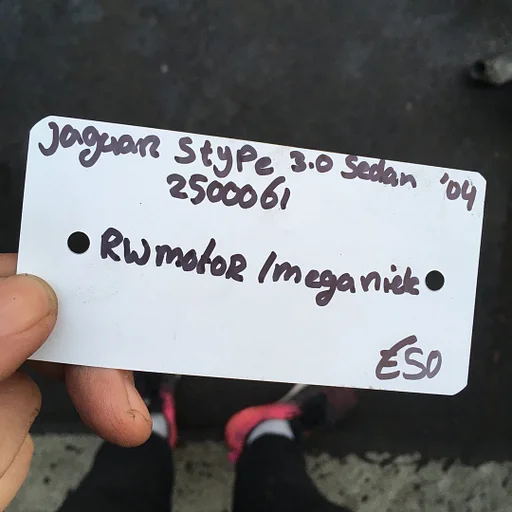 Jaguar Stype 3.0 Sedan '04
2500061
RWmotor / meganiek
E50